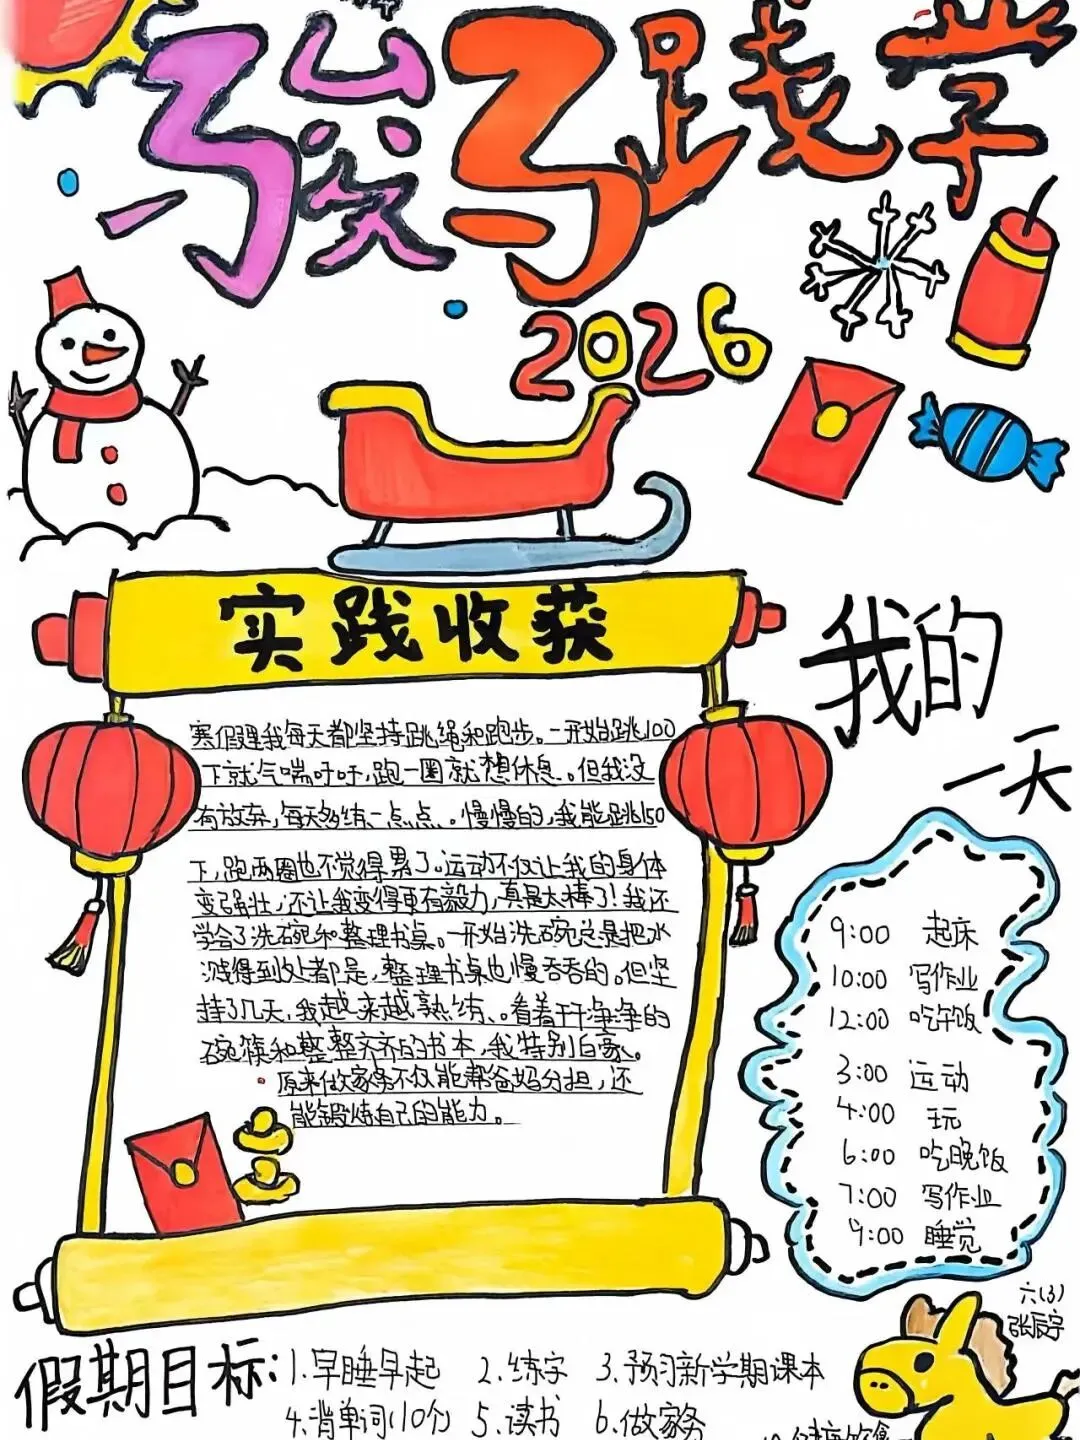 骏马践学
2026
实践收获
寒假里我每天都坚持跳绳和跑步。一开始跳100
下就气喘吁吁,跑一圈就想休息。但我没
有放弃,每天多练一点点。慢慢的,我能跳150
下,跑两圈也不觉得累了。运动不仅让我的身体
变强壮,还让我变得更有毅力,真是太棒了!我还
学会了洗碗和整理书桌。一开始洗碗总是把水
溅得到处都是,整理书桌也慢吞吞的。但坚
持了几天,我越来越熟练。看着干净净的
碗筷和整整齐齐的书本,我特别自豪。
原来做家务不仅能帮爸妈分担,还
能锻炼自己的能力。
我的
一天
9:00 起床
10:00 写作业
12:00 吃午饭
3:00 运动
4:00 玩
6:00 吃晚饭
7:00 写作业
9:00 睡觉
六(3)
张辰宇
假期目标:
1.早睡早起 2.练字 3.预习新学期课本
4.背单词(10个) 5.读书 6.做家务